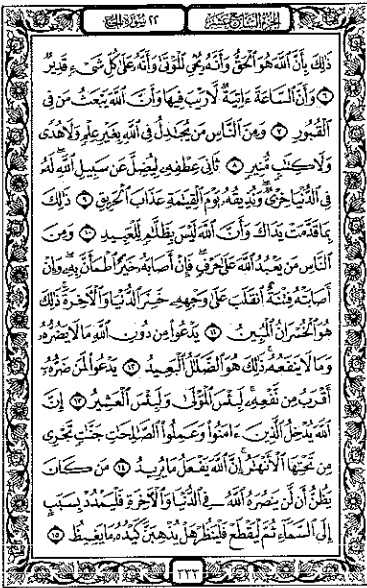 الجزء السابع عشر
٢٢ سورة الحج
ذَٰلِكَ بِأَنَّ ٱللَّهَ هُوَ ٱلْحَقُّ وَأَنَّهُۥ يُحْىِ ٱلْمَوْتَىٰ وَأَنَّهُۥ عَلَىٰ كُلِّ شَىْءٍ قَدِيرٌ
٦ وَأَنَّ ٱلسَّاعَةَ ءَاتِيَةٌ لَّا رَيْبَ فِيهَا وَأَنَّ ٱللَّهَ يَبْعَثُ مَن فِى
ٱلْقُبُورِ ٧ وَمِنَ ٱلنَّاسِ مَن يُجَٰدِلُ فِى ٱللَّهِ بِغَيْرِ عِلْمٍ وَلَا هُدًى
وَلَا كِتَٰبٍ مُّنِيرٍ ٨ ثَانِىَ عِطْفِهِۦ لِيُضِلَّ عَن سَبِيلِ ٱللَّهِ لَهُۥ
فِى ٱلدُّنْيَا خِزْىٌ وَنُذِيقُهُۥ يَوْمَ ٱلْقِيَٰمَةِ عَذَابَ ٱلْحَرِيقِ ٩ ذَٰلِكَ
بِمَا قَدَّمَتْ يَدَاكَ وَأَنَّ ٱللَّهَ لَيْسَ بِظَلَّٰمٍ لِّلْعَبِيدِ ١٠ وَمِنَ
ٱلنَّاسِ مَن يَعْبُدُ ٱللَّهَ عَلَىٰ حَرْفٍ فَإِنْ أَصَابَهُۥ خَيْرٌ ٱطْمَأَنَّ بِهِۦ وَإِنْ
أَصَابَتْهُ فِتْنَةٌ ٱنقَلَبَ عَلَىٰ وَجْهِهِۦ خَسِرَ ٱلدُّنْيَا وَٱلْءَاخِرَةَ ذَٰلِكَ
هُوَ ٱلْخُسْرَانُ ٱلْمُبِينُ ١١ يَدْعُوا۟ مِن دُونِ ٱللَّهِ مَا لَا يَضُرُّهُۥ
وَمَا لَا يَنفَعُهُۥ ذَٰلِكَ هُوَ ٱلضَّلَٰلُ ٱلْبَعِيدُ ١٢ يَدْعُوا۟ لَمَن ضَرُّهُۥٓ
أَقْرَبُ مِن نَّفْعِهِۦ لَبِئْسَ ٱلْمَوْلَىٰ وَلَبِئْسَ ٱلْعَشِيرُ ١٣ إِنَّ
ٱللَّهَ يُدْخِلُ ٱلَّذِينَ ءَامَنُوا۟ وَعَمِلُوا۟ ٱلصَّٰلِحَٰتِ جَنَّٰتٍ تَجْرِى
مِن تَحْتِهَا ٱلْأَنْهَٰرُ إِنَّ ٱللَّهَ يَفْعَلُ مَا يُرِيدُ ١٤ مَن كَانَ
يَظُنُّ أَن لَّن يَنصُرَهُ ٱللَّهُ فِى ٱلدُّنْيَا وَٱلْءَاخِرَةِ فَلْيَمْدُدْ بِسَبَبٍ
إِلَى ٱلسَّمَآءِ ثُمَّ لْيَقْطَعْ فَلْيَنظُرْ هَلْ يُذْهِبَنَّ كَيْدُهُۥ مَا يَغِيظُ ١٥
٣٣٣